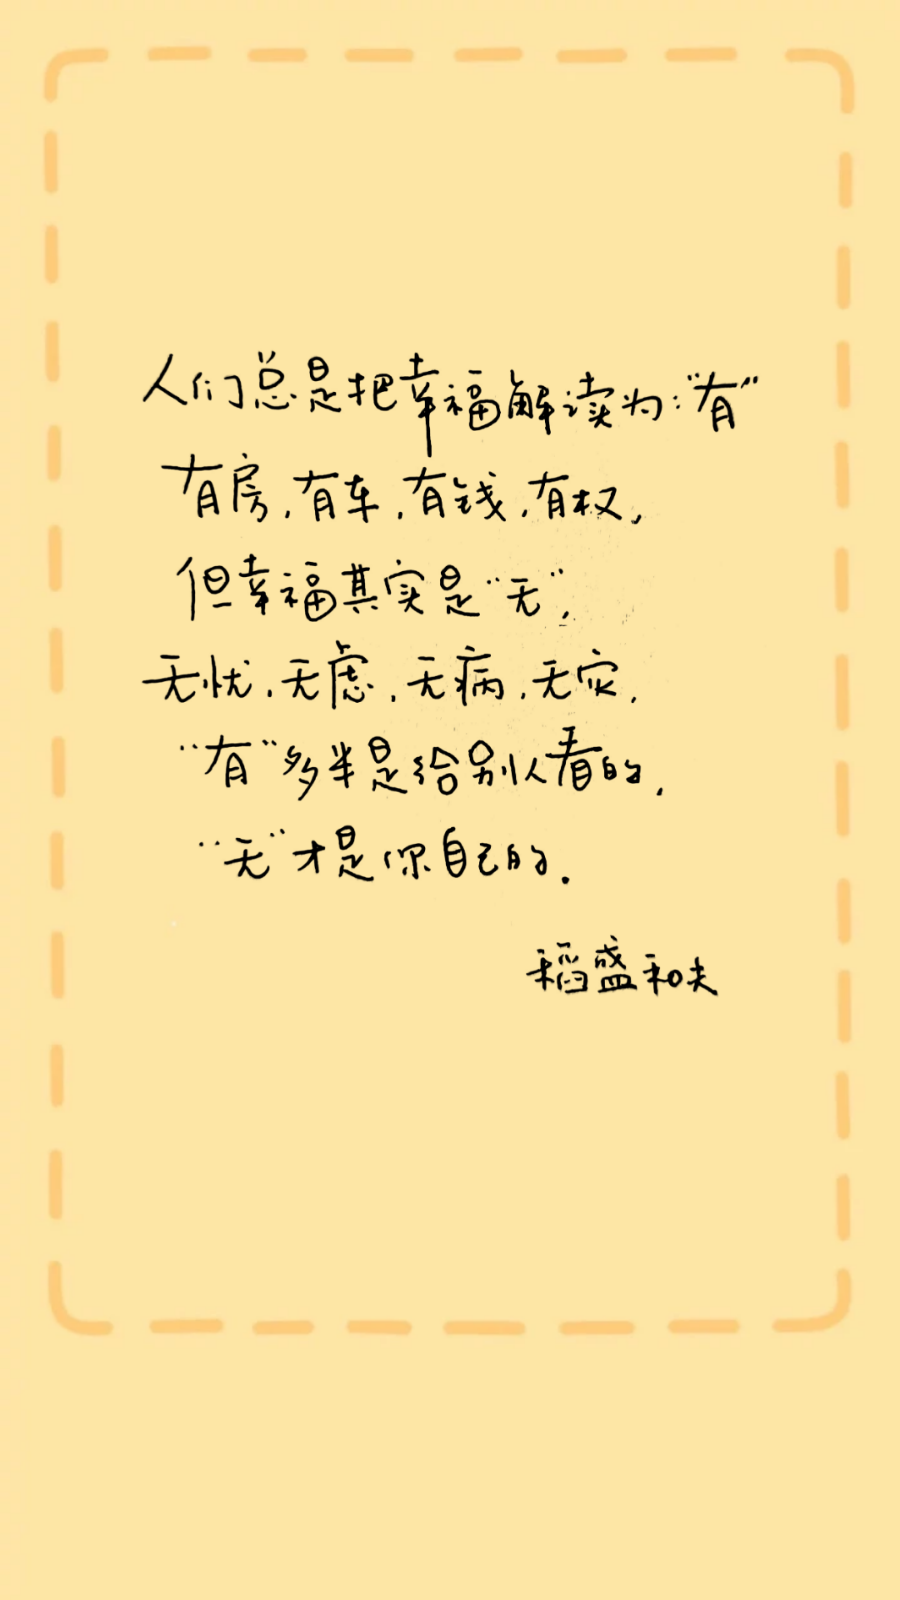 人们总是把幸福解读为："有"
有房,有车,有钱,有权,
但幸福其实是"无",
无忧,无虑,无病,无灾,
"有"多半是给别人看的,
"无"才是你自己的.
稻盛和夫